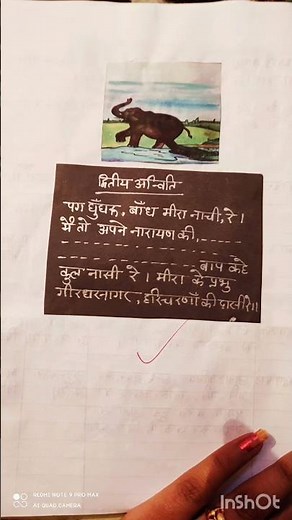 द्वितीय अन्विति
पग घुँघरू, बाँध मीरा नाची, रे।
मैं तो अपने नारायण की, -----
बाप कहे
कुल नासी रे। मीरा के प्रभु
गीरधरनागर, हरिचरणाँ की दासी रे॥
REDMI NOTE 9 PRO MAX
AI QUAD CAMERA
InShOt